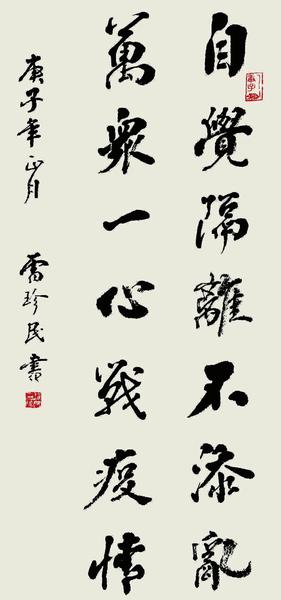 自覺隔離不添亂
萬眾一心戰疫情
庚子年正月 雷珍民書